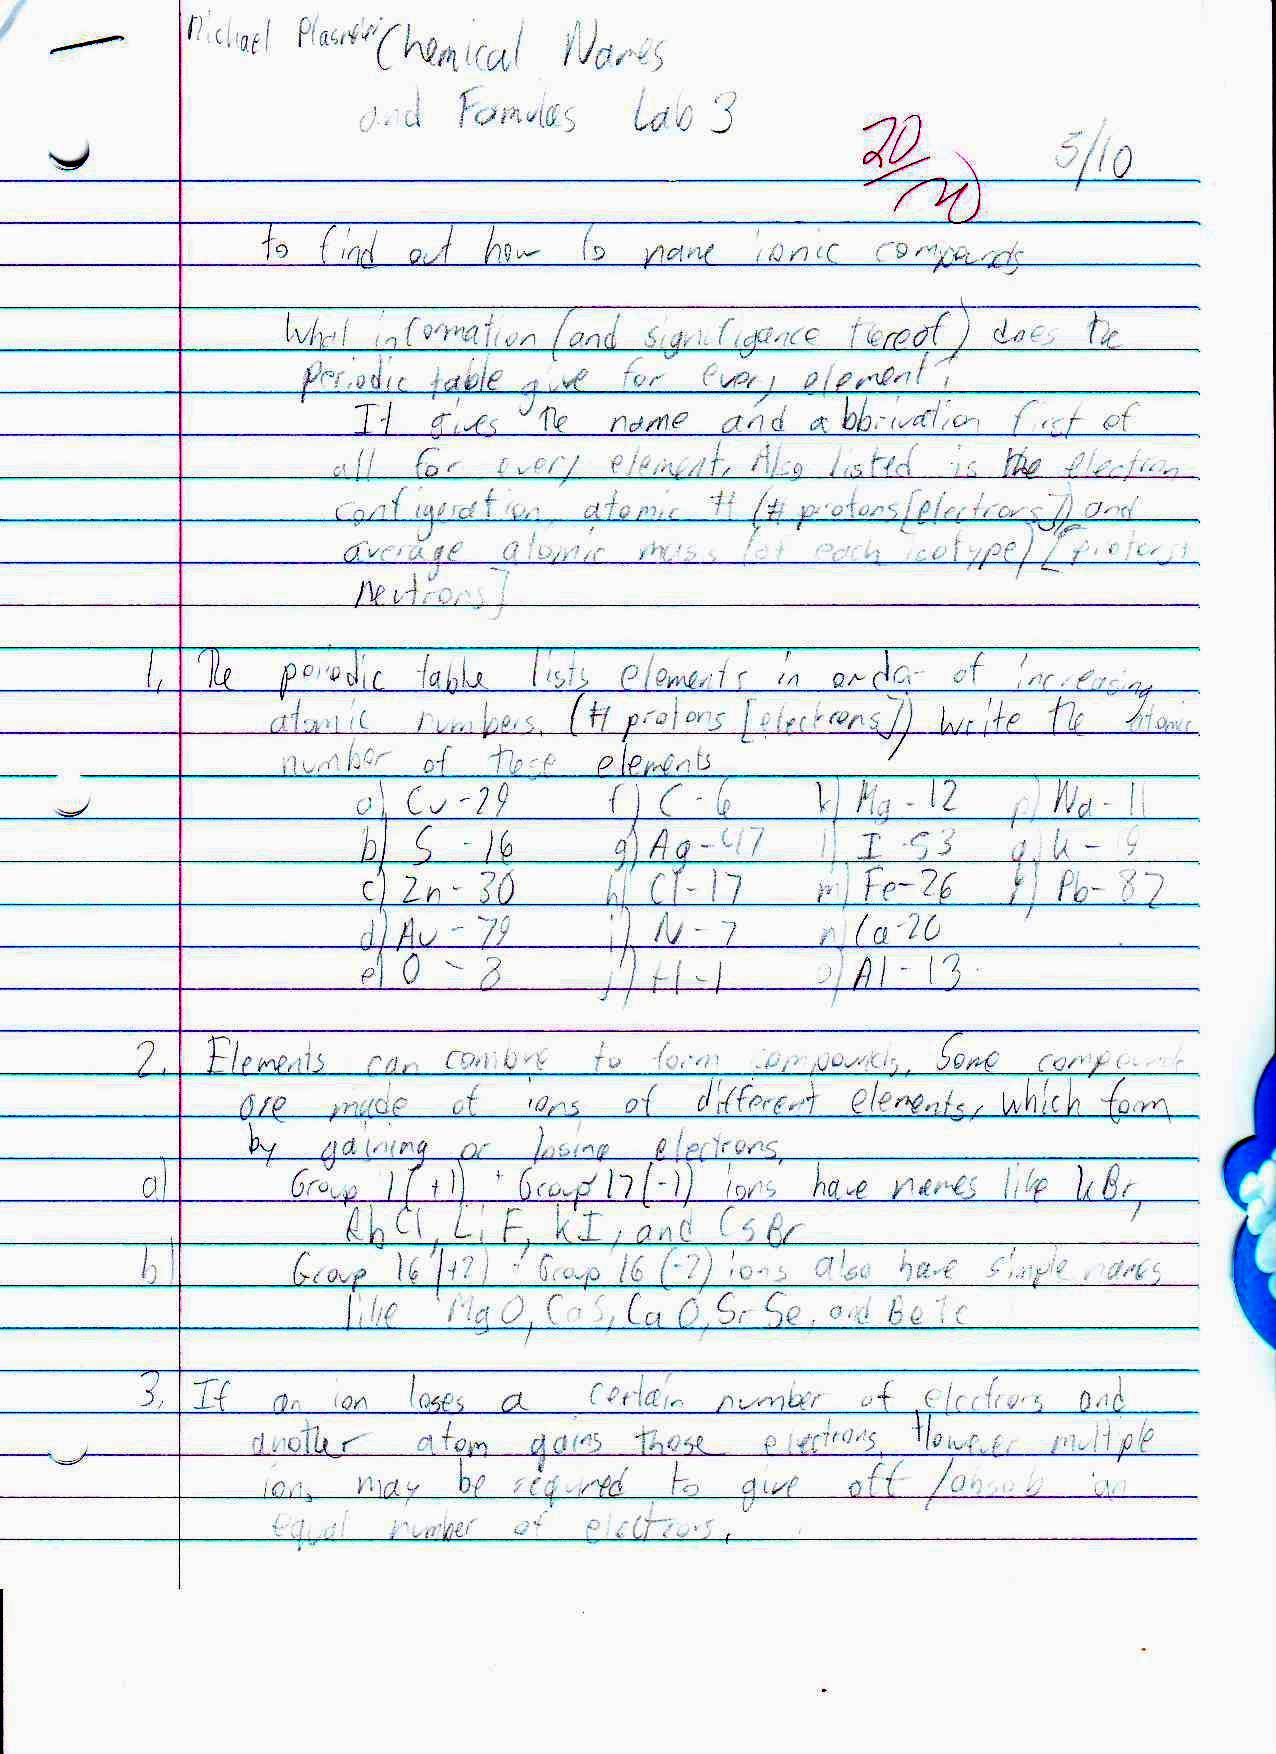 Michael Chemical Names
and Fomulas Lab 3
20/20 5/10
to find out how to name ionic compounds
What information (and signifigance thereof) does the
periodic table give for every element?
It gives the name and abbriviation first of
all for every element. Also listed is the electron
configeration, atomic # (# protons [electrons]) and
average atomic mass (of each isotype) [protons
neutrons]
1. The periodic table lists elements in order of increasing
atomic numbers. (# protons [electrons]) Write the atomic
number of these elements
a) Cu-29 f) C-6 k) Mg-12 p) Na-11
b) S-16 g) Ag-47 l) I-53 q) K-19
c) Zn-30 h) Cl-17 m) Fe-26 r) Pb-82
d) Au-79 i) N-7 n) Ca-20
e) O-8 j) H-1 o) Al-13
2. Elements can combine to form compounds. Some compounds
are made of ions of different elements, which form
by gaining or losing electrons.
a) Group 1(+1) + Group 17(-1) ions have names like KBr,
RbCl, LiF, KI, and CsBr
b) Group 16(+2) + Group 16(-2) ions also have simple names
like MgO, CaS, CaO, SrSe, and BeTe
3. If an ion loses a certain number of electrons and
another atom gains those electrons. However multiple
ions may be required to give off/absorb an
equal number of electrons.